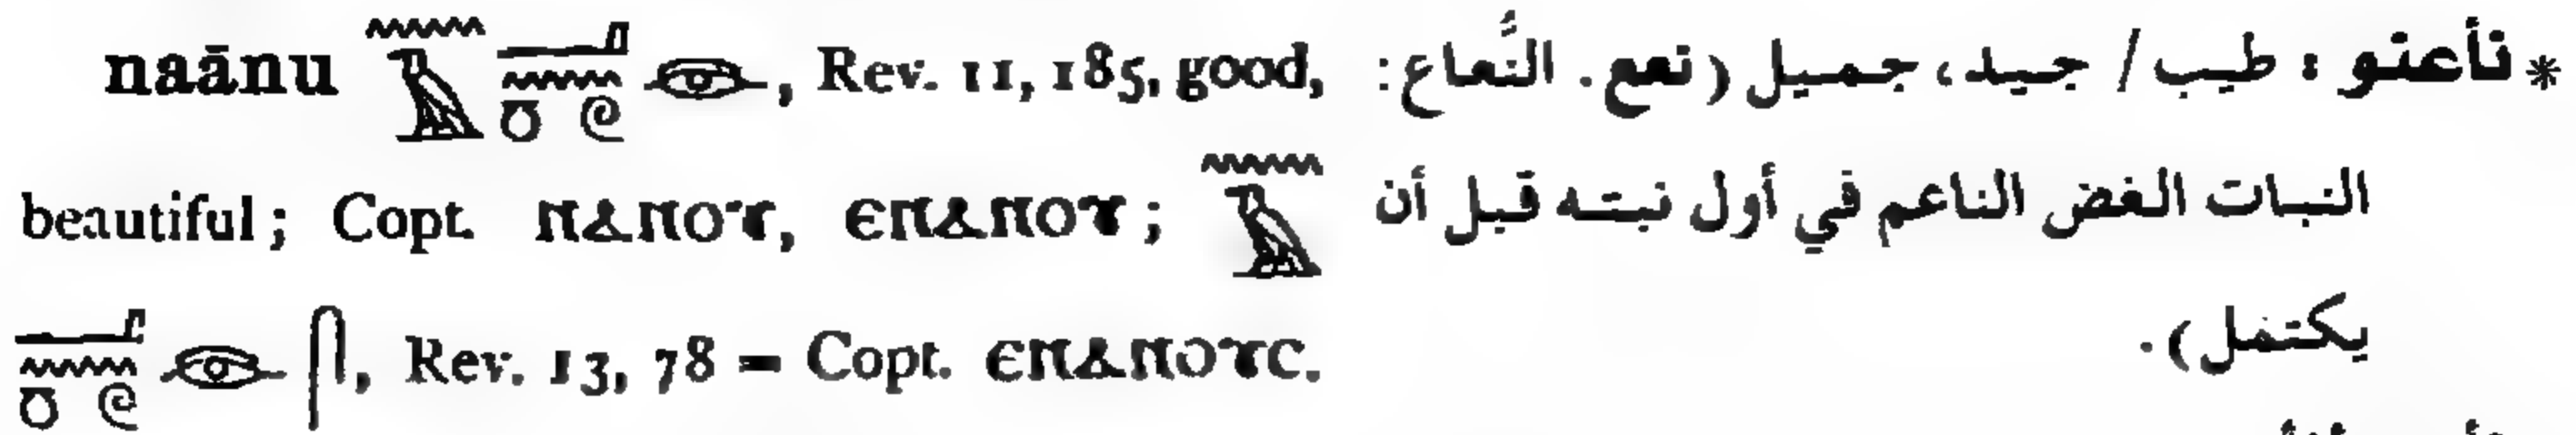 naānu 𓈖𓄿𓂝𓈖𓏌𓏲𓁹, Rev. 11, 185, good,
beautiful; Copt. ⲛⲁⲛⲟⲩ, ⲉⲛⲁⲛⲟⲩ; 𓈖𓄿
𓂝𓈖𓏌𓏲𓁹𓋴, Rev. 13, 78 = Copt. ⲉⲛⲁⲛⲟⲩⲥ.
* نأعنو : طيب / جيد، جميل (نعع. النُّعاع:
النبات الغض الناعم في أول نبته قبل أن
يكتمل).